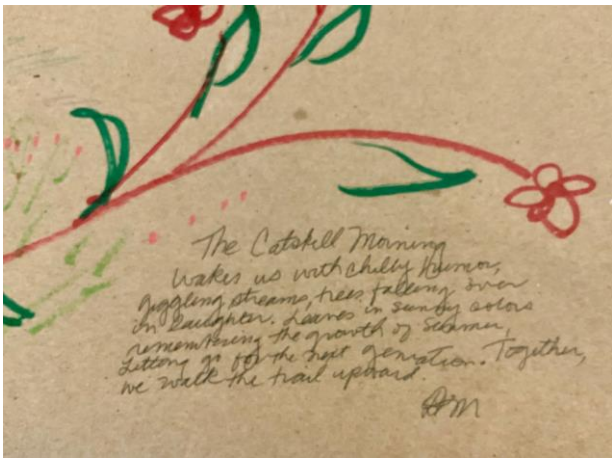 The Catskill Morning
wakes us with chilly humor,
giggling streams, trees falling over
in laughter. Leaves in sunny colors
remembering the growth of Summer,
Letting go for the next genration. Together,
we walk the trail upward.